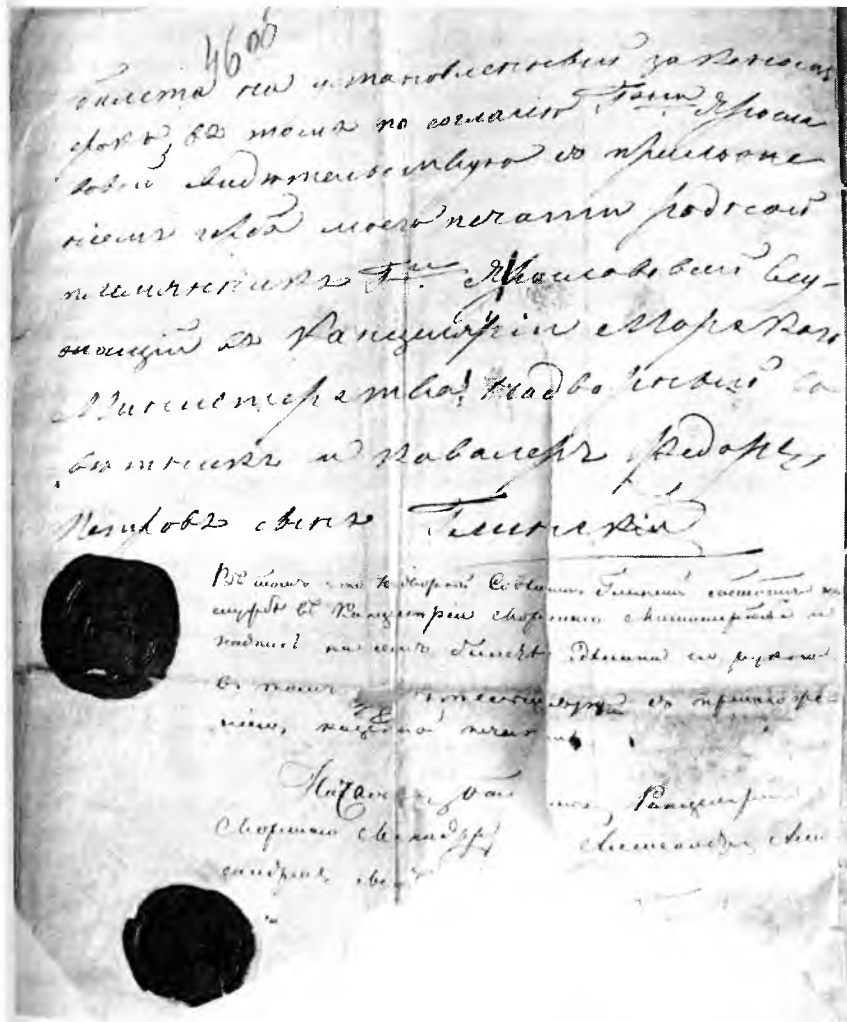 46 об
билета на установленный закономъ
срокъ, въ томъ по согласію Г-жи Яросла
вовой свидѣтельствую съ приложе
ніемъ герба моего печати родной
племянникъ Г-жи Ярославовой слу-
жащій въ Канцеляріи Морскаго
Министерства надворный со
вѣтникъ и кавалеръ Федоръ
Петровъ сынъ Глинскій
Въ томъ что Надворной Совѣтникъ Глинскій состоитъ на
службѣ въ Канцеляріи Морскаго Министерства и
надпись на семъ билетѣ сдѣлана его рукою
въ томъ съ приложе
ніемъ казенной печати
Канцеляріи
Морскаго Александръ Алек
сандровъ сынъ